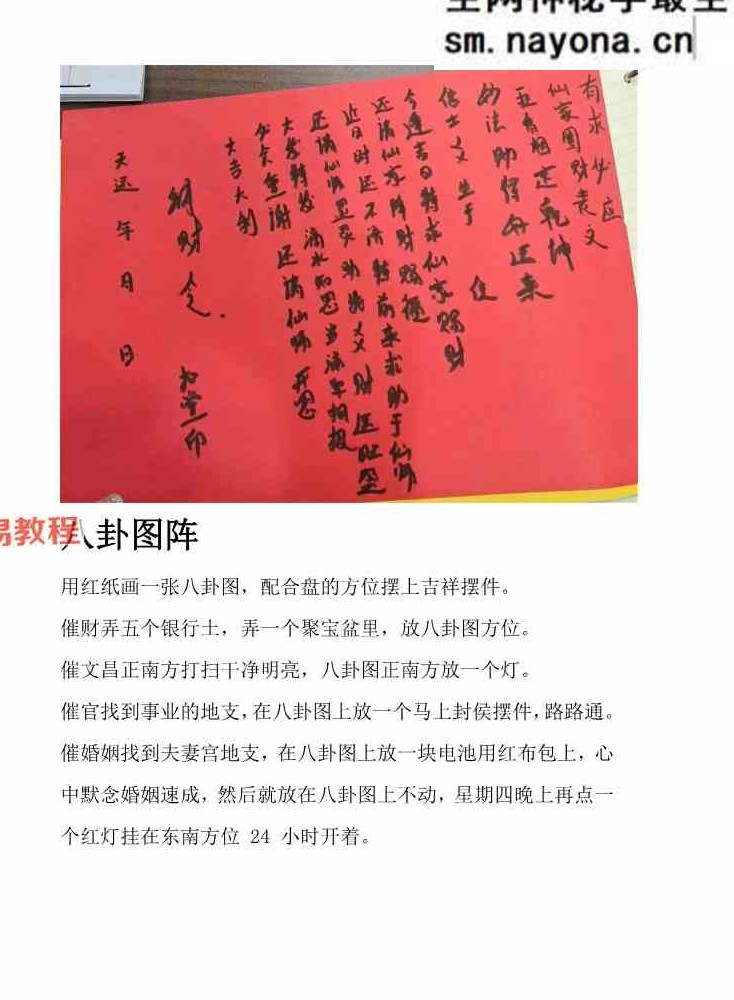 sm.nayona.cn
有求必应
仙家团财表文
五台烟定乾坤
妙法助信分正来
信士 义 生于 住
今逢吉日特求仙家赐财
还请仙家降财赐福
近日时运不济特前来求助于仙师
还请仙师显灵助弟子义财运旺盛
大发特发 滴水的恩当涌年相报
必大重谢 还请仙师开恩
大吉大利
财令
天运 年 月 日
易教程
八卦图阵
用红纸画一张八卦图，配合盘的方位摆上吉祥摆件。
催财弄五个银行土，弄一个聚宝盆里，放八卦图方位。
催文昌正南方打扫干净明亮，八卦图正南方放一个灯。
催官找到事业的地支，在八卦图上放一个马上封侯摆件，路路通。
催婚姻找到夫妻宫地支，在八卦图上放一块电池用红布包上，心
中默念婚姻速成，然后就放在八卦图上不动，星期四晚上再点一
个红灯挂在东南方位 24 小时开着。